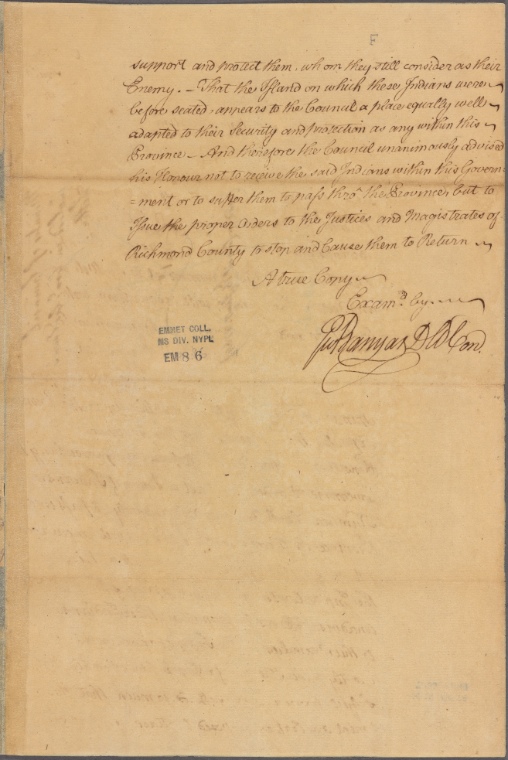 F
support and protect them, whom they still consider as their
Enemy. – That the Island on which these Indians were
before seated, appears to the Council a place equally well
adapted to their Security and protection as any within this
Province – And therefore the Council unanimously advised
his Honour not to receive the said Indians within this Govern
=ment or to suffer them to pass thro' the Province but to
Issue the proper Orders to the Justices and Magistrates of
Richmond County to stop and Cause them to Return
A true Copy
Exam.d by
Banyar D Con.
EMMET COLL.
MS DIV. NYPL
EM 86